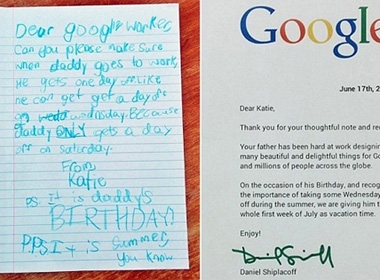 Dear google worker,
Can you please make sure
when daddy goes to work,
He gets one day off. Like
he can get get a day off
on wedn wednesday. BEcause
daddy ONLY gets a day
off on saturday.
From,
Katie
P.S. It is daddy's
BIRTHDAY!
P.P.S. It is summer,
you know
Google
June 17th, 2
Dear Katie,
Thank you for your thoughtful note and re
Your father has been hard at work design
many beautiful and delightful things for Go
and millions of people across the globe.
On the occasion of his Birthday, and recog
the importance of taking some Wednesday
off during the summer, we are giving him t
whole first week of July as vacation time.
Enjoy!
Daniel Shiplacoff